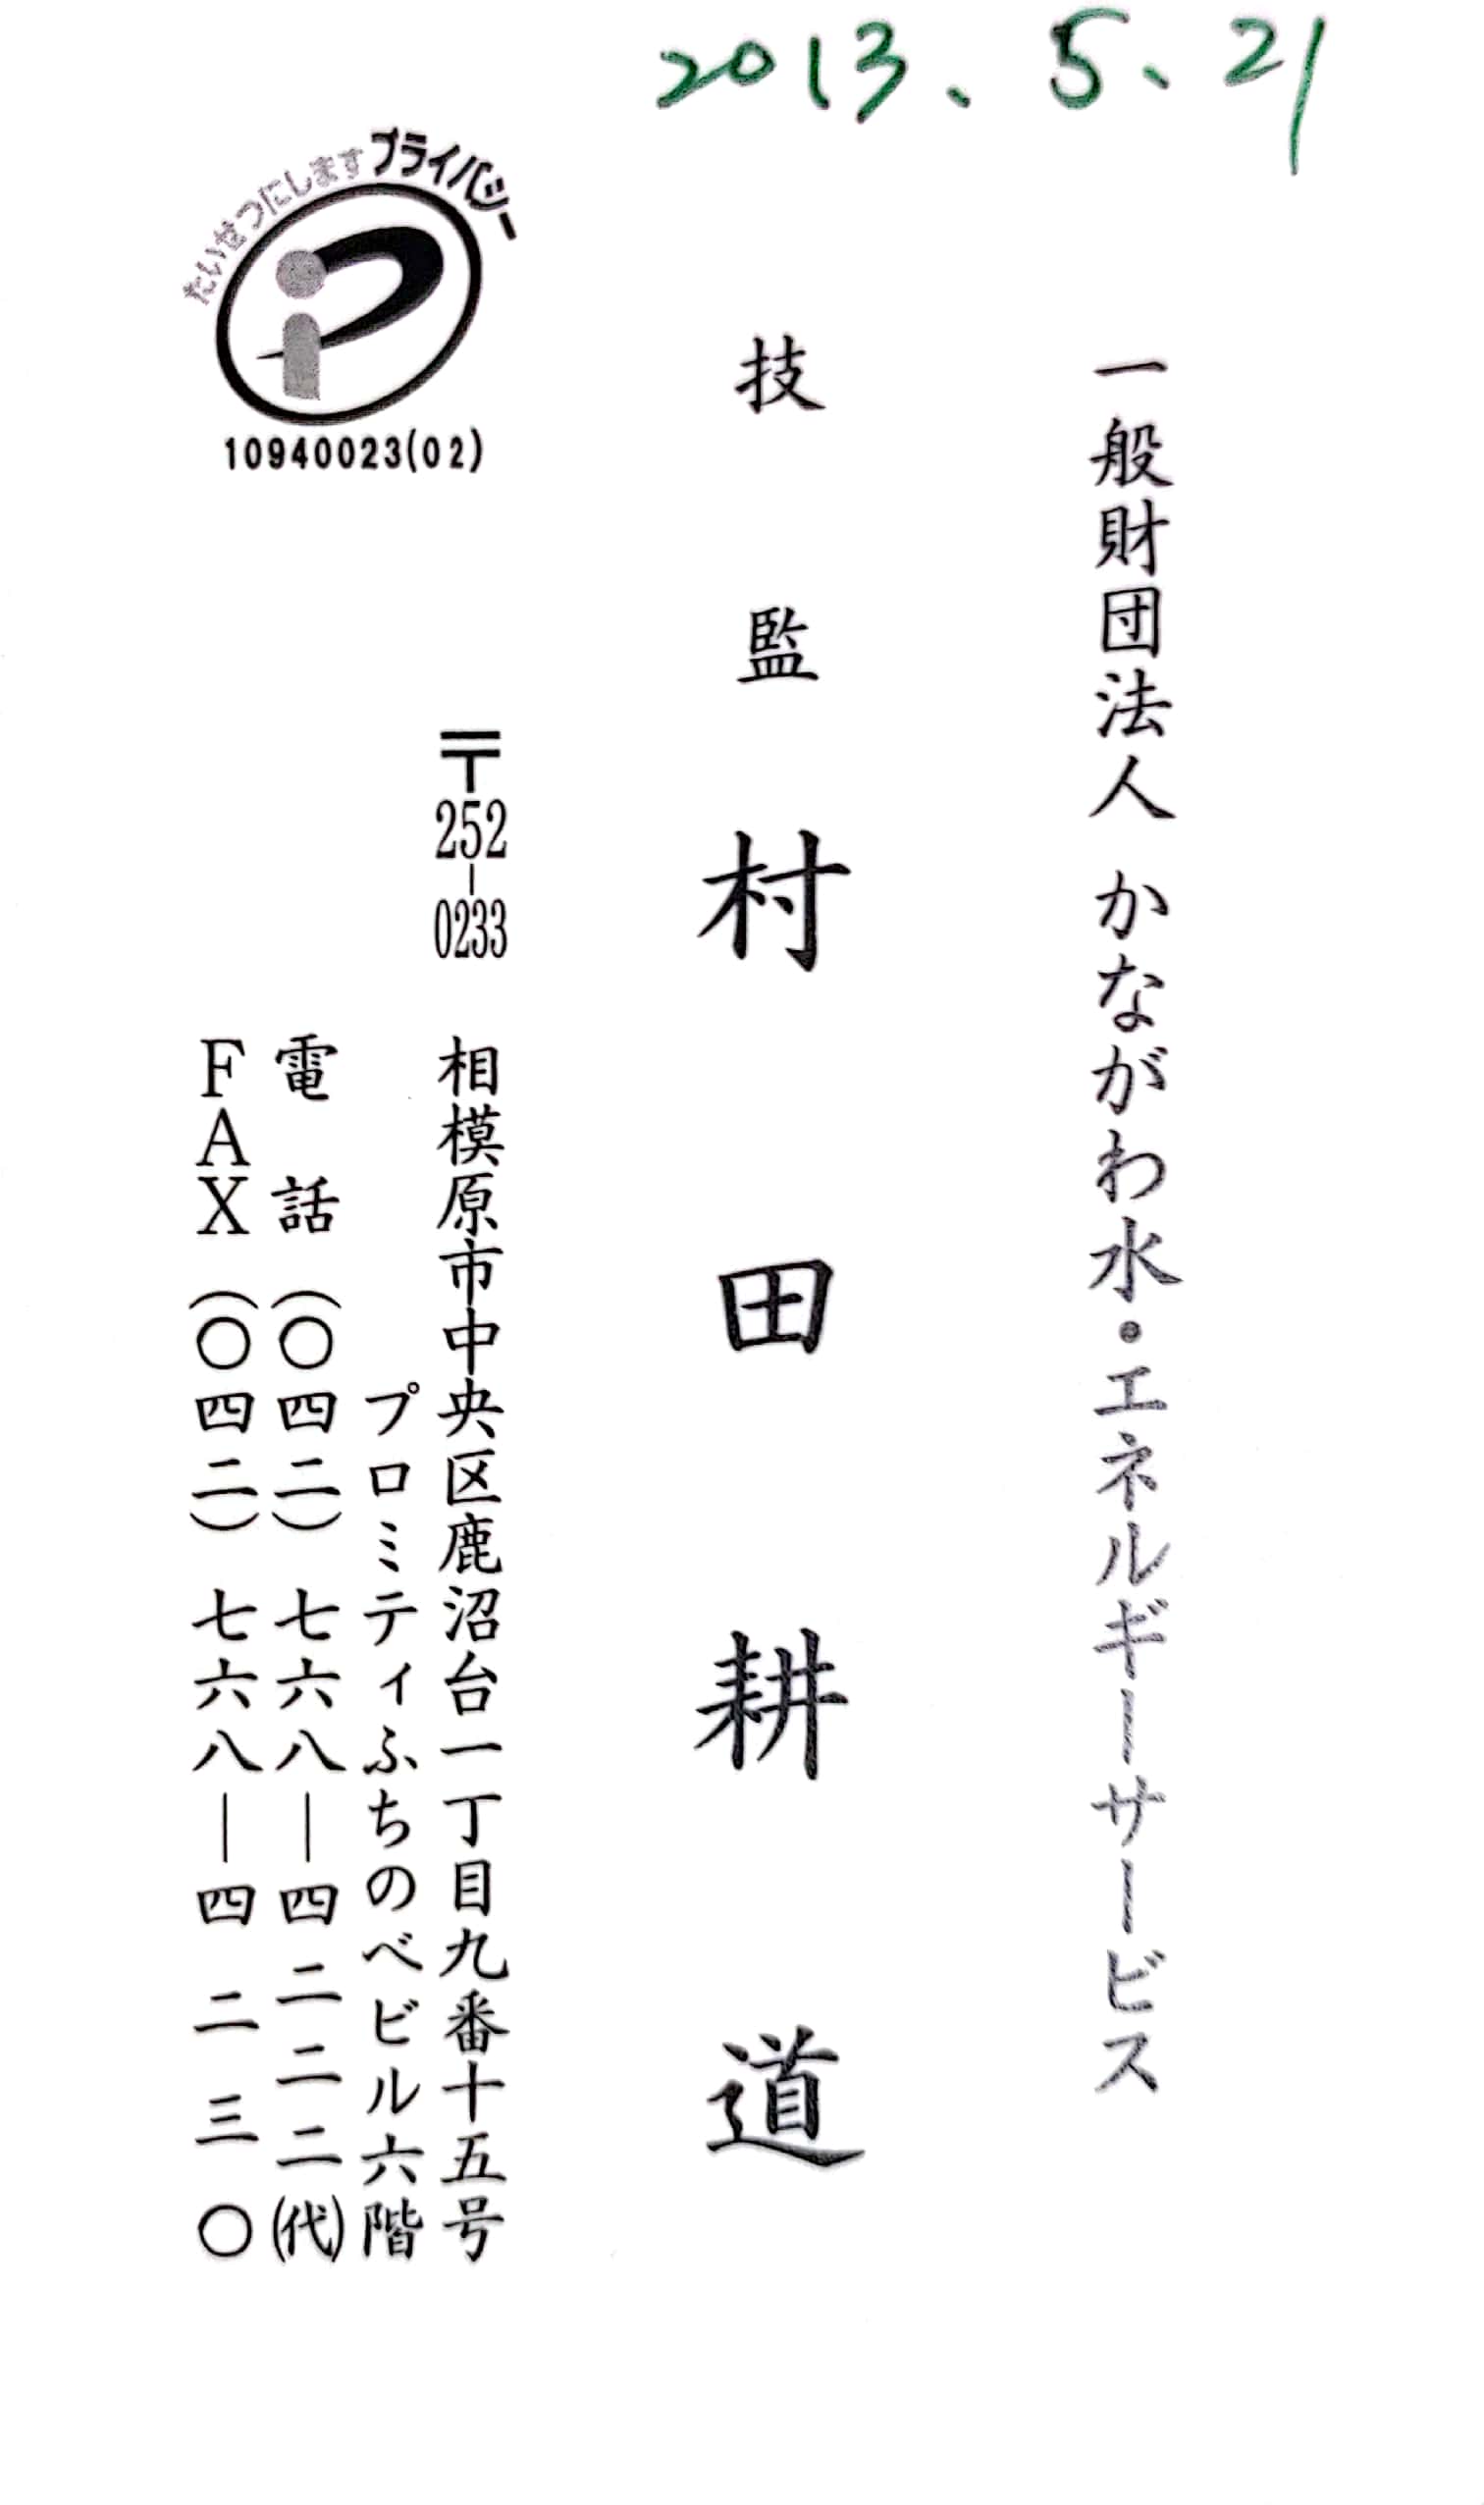 2013、5、21
一般財団法人 かながわ水・エネルギーサービス
技監 村田耕道
〒252-0233 相模原市中央区鹿沼台一丁目九番十五号
プロミティふちのべビル六階
電話 (〇四二) 七六八—四二二二(代)
FAX (〇四二) 七六八—四二三〇
たいせつにしますプライバシー
10940023(02)